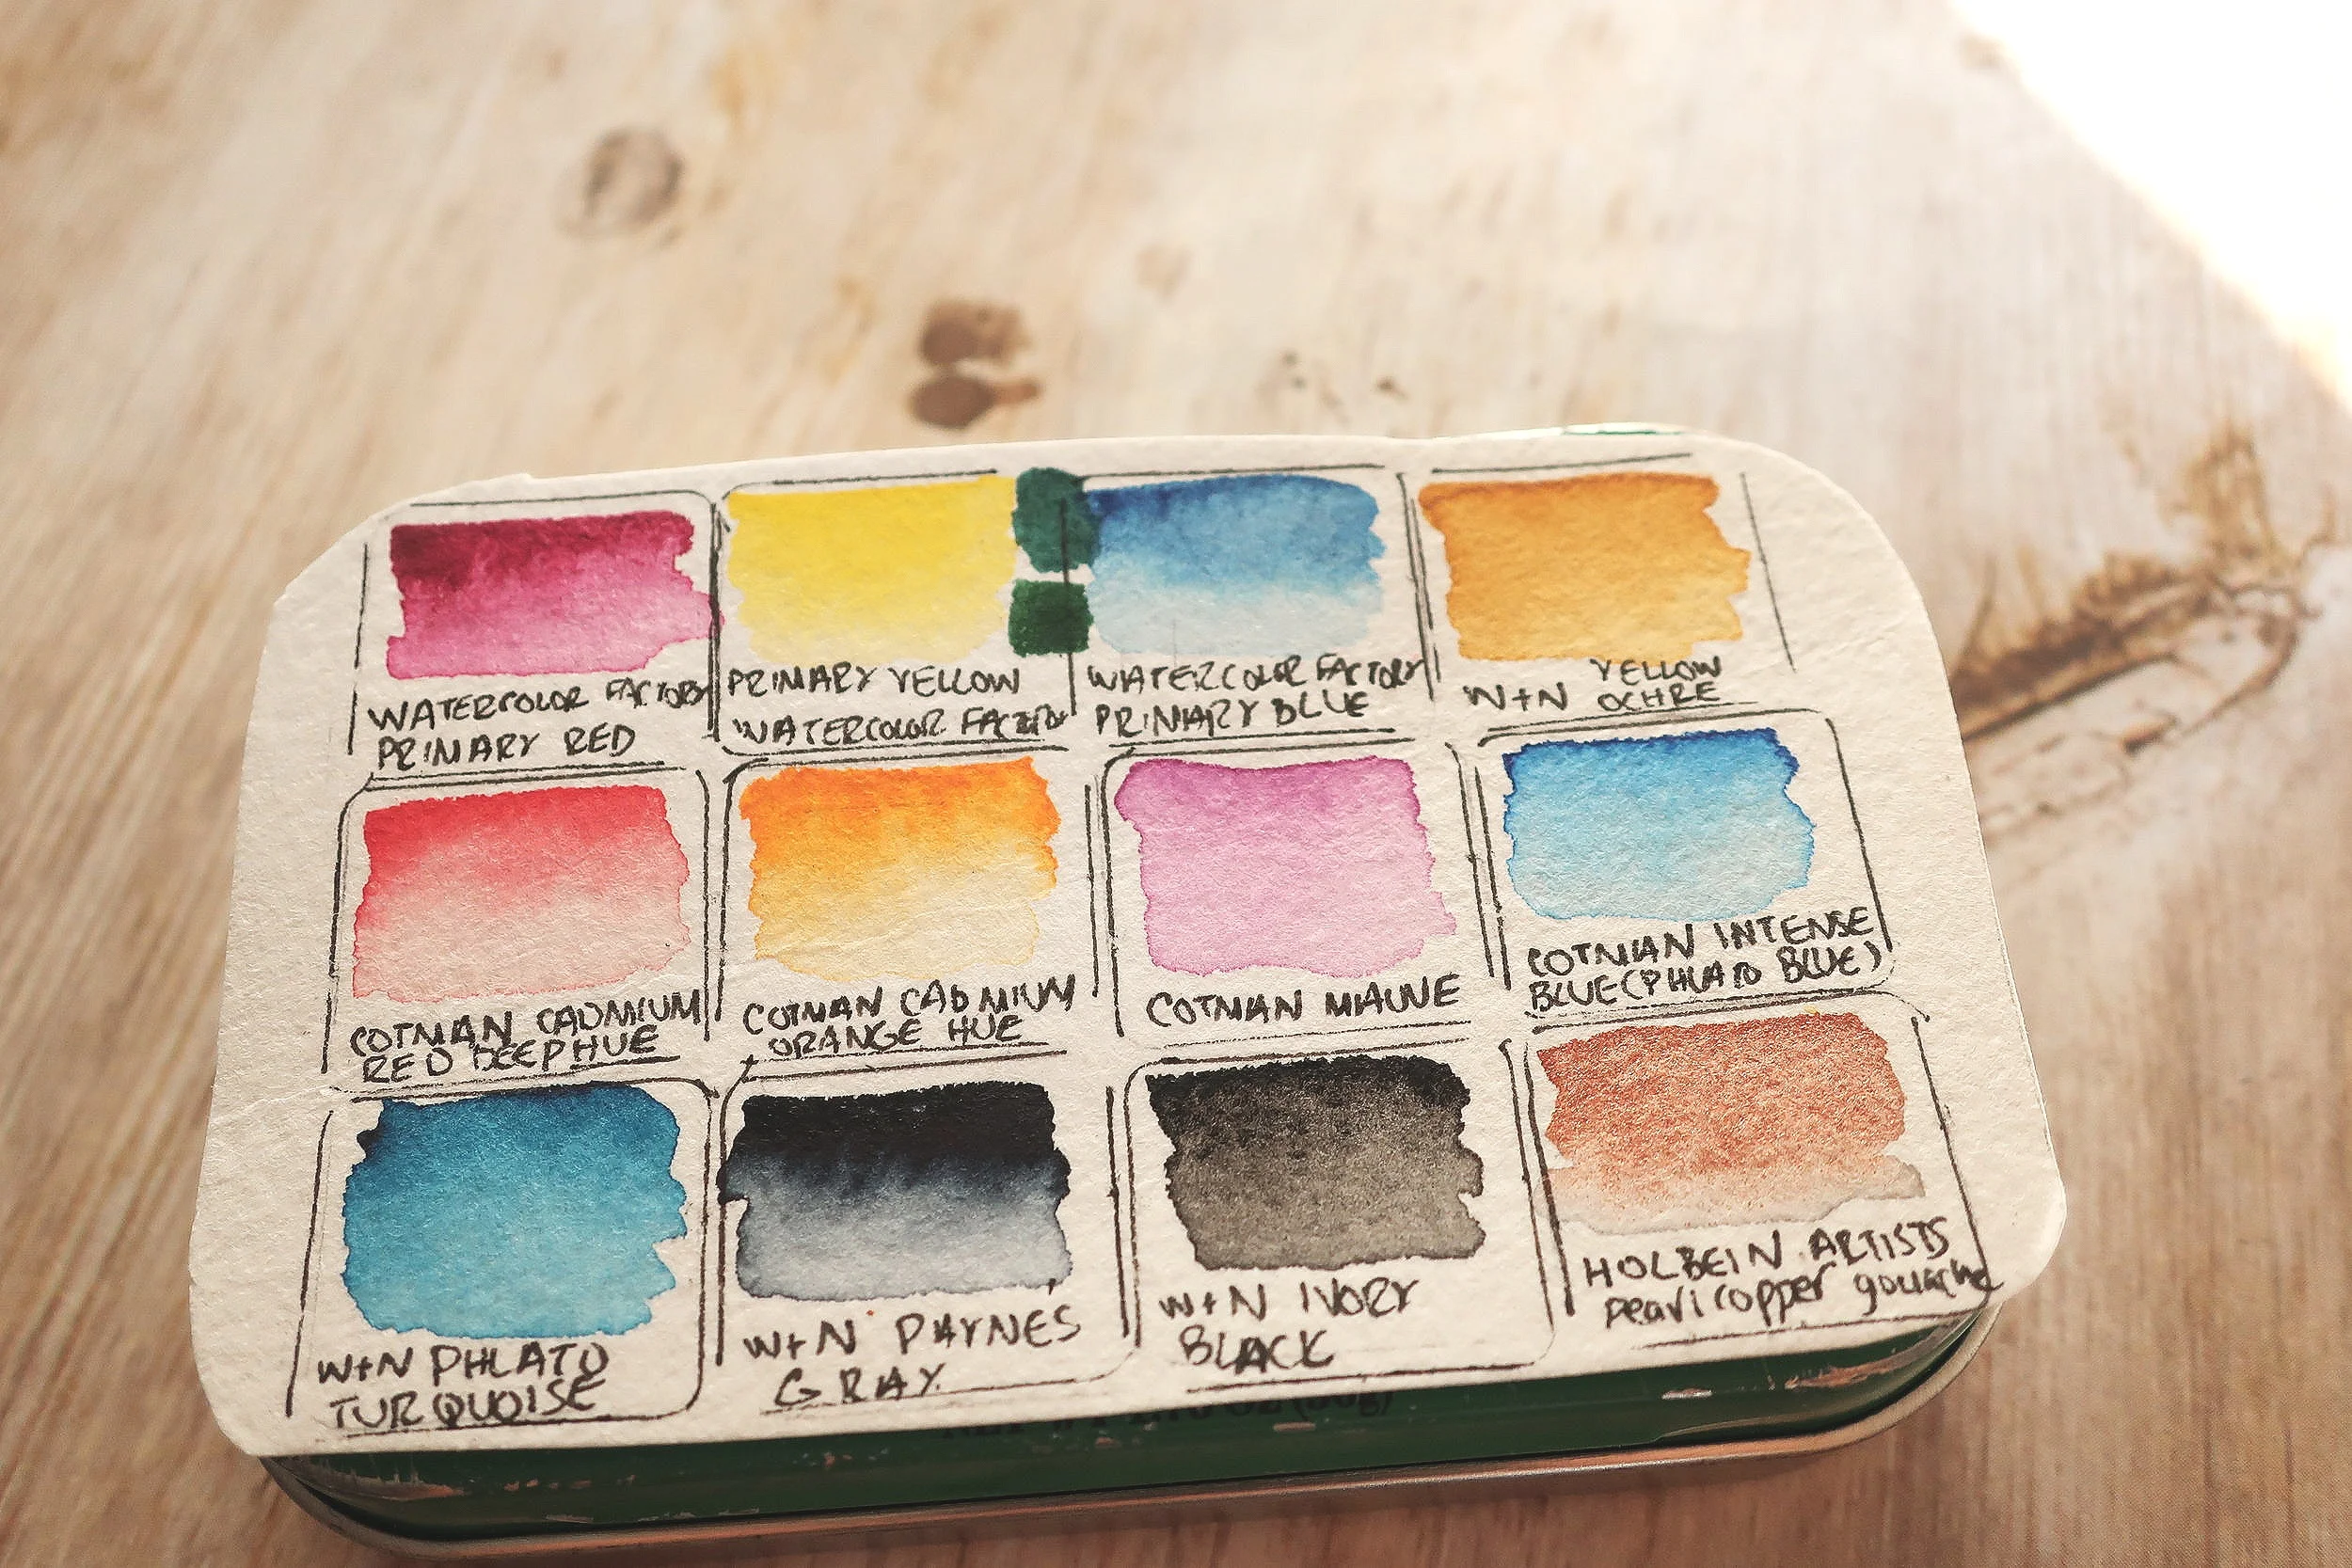 WATERCOLOR FACTORY
PRIMARY RED
PRIMARY YELLOW
WATERCOLOR FACTORY
WATERCOLOR FACTORY
PRIMARY BLUE
W+N YELLOW
OCHRE
COTMAN CADMIUM
RED DEEP HUE
COTMAN CADMIUM
ORANGE HUE
COTMAN MAUVE
COTMAN INTENSE
BLUE (PHLATO BLUE)
W+N PHLATO
TURQUOISE
W+N PAYNES
GRAY
W+N IVORY
BLACK
HOLBEIN ARTISTS
pearl copper gouache